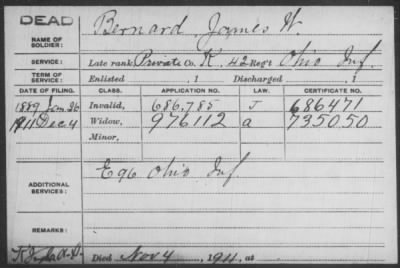 DEAD
Bernard, James W.
NAME OF SOLDIER:
SERVICE: Late rank Private Co. K. 42 Reg't Ohio Inf.
TERM OF SERVICE: Enlisted , 1 Discharged , 1
DATE OF FILING. CLASS. APPLICATION NO. LAW. CERTIFICATE NO.
1889 Jan. 26 Invalid, 686,785 J 686471
1911 Dec 4 Widow, 976112 a 735050
Minor,
E 96 Ohio Inf
ADDITIONAL SERVICES:
REMARKS:
Died Nov 4, 1911, at